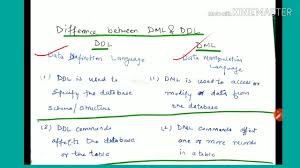 Made with
KINEMASTER
Difference between DML & DDL
DDL
DML
Data Definition Language
Data Manipulation
Language
(1) DDL is used to
specify the database
schema/structure
(1) DML is used to access or
modify or data from
the database
(2) DDL commands
affects the database
or the table
(2) DML commands affect
one or more records
in a table